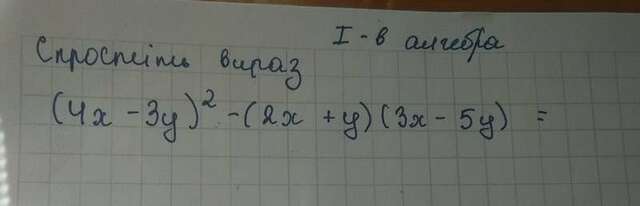 I - в алгебра
Спростіть вираз
(4x - 3y)² - (2x + y)(3x - 5y) =